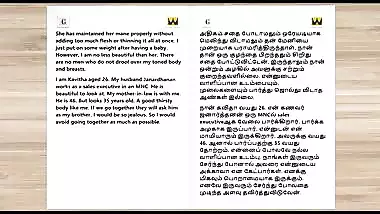 G
W
She has maintained her mane properly without
adding too much flesh or thinning it all at once. I
just put on some weight after having a baby.
However, I am no less beautiful than her. There
are no men who do not drool over my toned body
and breasts.
I am Kavitha aged 26. My husband Janardhanan
works as a sales executive in an MNC. He is
beautiful to look at. My mother-in-law is with me.
He is 46. But looks 35 years old. A good thirsty
body like me. If we go together they will ask him
as my brother. I would be so jealous. So I would
avoid going together as much as possible.
G
W
அதிகம் சதை போடாமலும் ஒரேயடியாக
மெலிந்து விடாமலும் தன் மேனியை
முறையாக பராமரித்திருந்தாள். நான்
தான் ஒரு குழந்தை பெற்றவுடன் சிறிது
சதை போட்டுவிட்டேன். இருந்தாலும் நான்
ஒன்றும் அழகில் அவளுக்கு சற்றும்
குறைந்தவளில்லை. என்னுடைய
வாளிப்பான உடம்பையும்,
முலைகளையும் பார்த்து ஜொல்லு விடாத
ஆண்கள் இல்லை.
நான் கவிதா வயது 26. என் கணவர்
ஜனார்த்தனன் ஒரு MNCல் sales
executiveஆக வேலை பார்க்கிறார். பார்க்க
அழகாக இருப்பார். என்னுடன் என்
மாமியாரும் இருக்கிறாள். அவருக்கு வயது
46. ஆனால் பார்ப்பதற்கு 35 வயது
தோற்றம். என்னைப் போலவே நல்ல
வாளிப்பான உடம்பு. நாங்கள் இருவரும்
சேர்ந்து போனால் அவரை என்னுடைய
அக்காவா என கேட்பார்கள். எனக்கு
மிகவும் பொறாமையாக இருக்கும்.
எனவே இருவரும் சேர்ந்து போவதை
முடிந்த அளவு தவிர்த்துவிடுவேன்.